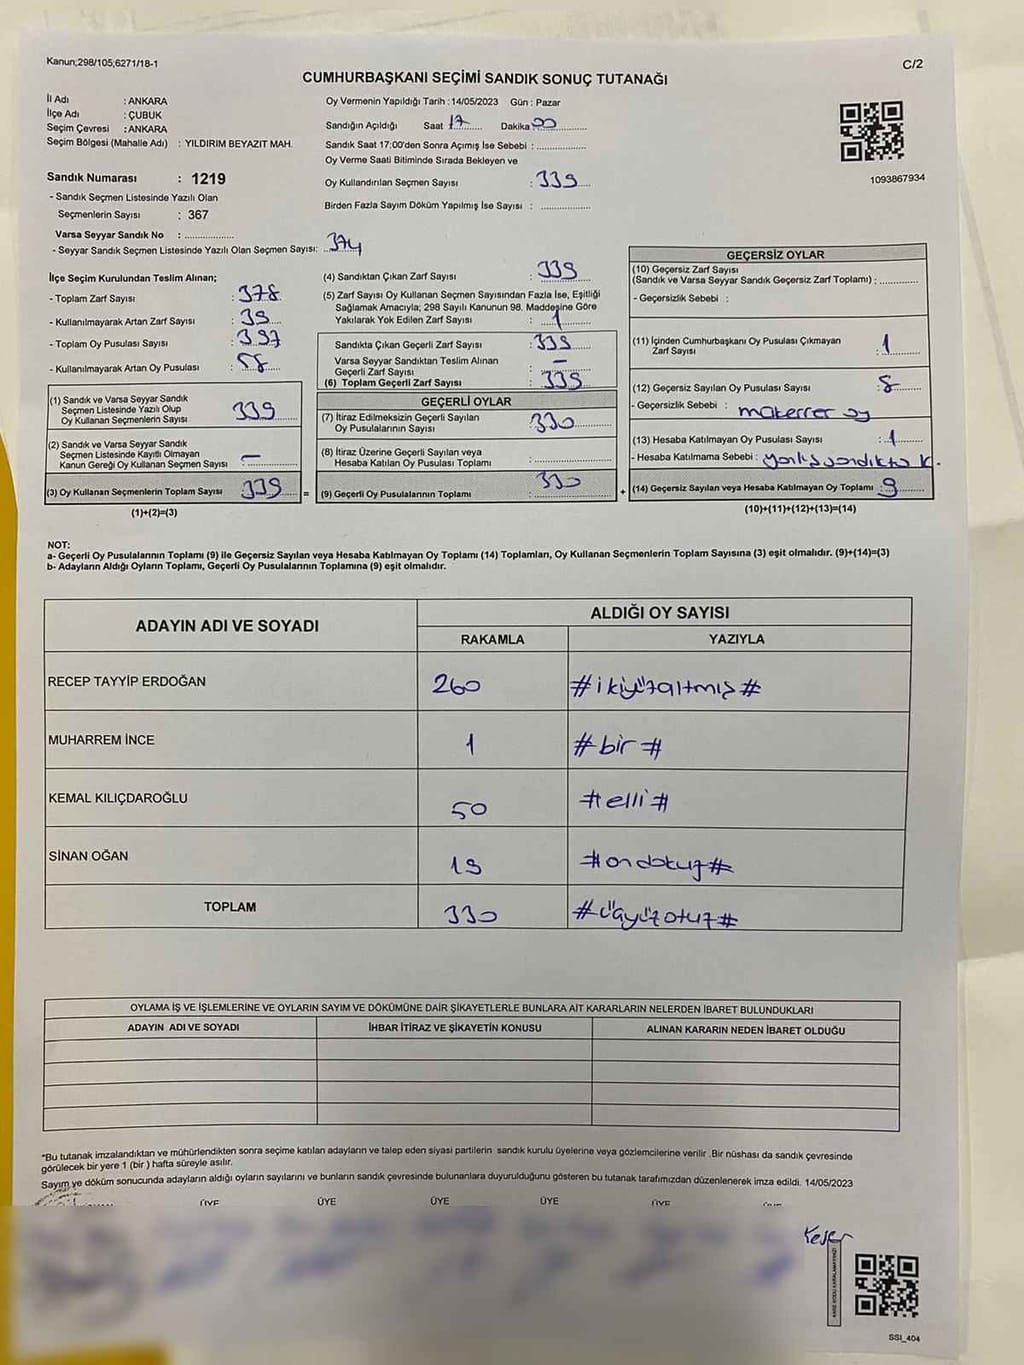 Kanun;298/105;6271/18-1
C/2
CUMHURBAŞKANI SEÇİMİ SANDIK SONUÇ TUTANAĞI
İl Adı : ANKARA
İlçe Adı : ÇUBUK
Seçim Çevresi : ANKARA
Seçim Bölgesi (Mahalle Adı) : YILDIRIM BEYAZIT MAH.
Sandık Numarası : 1219
- Sandık Seçmen Listesinde Yazılı Olan
Seçmenlerin Sayısı : 367
Varsa Seyyar Sandık No :
- Seyyar Sandık Seçmen Listesinde Yazılı Olan Seçmen Sayısı: 374
Oy Vermenin Yapıldığı Tarih :14/05/2023 Gün : Pazar
Sandığın Açıldığı Saat 17 Dakika 00
Sandık Saat 17:00'den Sonra Açımış İse Sebebi :
Oy Verme Saati Bitiminde Sırada Bekleyen ve
Oy Kullandırılan Seçmen Sayısı : 339
Birden Fazla Sayım Döküm Yapılmış İse Sayısı :
1093867934
İlçe Seçim Kurulundan Teslim Alınan;
- Toplam Zarf Sayısı : 378
- Kullanılmayarak Artan Zarf Sayısı : 39
- Toplam Oy Pusulası Sayısı : 397
- Kullanılmayarak Artan Oy Pusulası : 58
(1) Sandık ve Varsa Seyyar Sandık
Seçmen Listesinde Yazılı Olup
Oy Kullanan Seçmenlerin Sayısı 339
(2) Sandık ve Varsa Seyyar Sandık
Seçmen Listesinde Kayıtlı Olmayan
Kanun Gereği Oy Kullanan Seçmen Sayısı : –
(3) Oy Kullanan Seçmenlerin Toplam Sayısı 339 =
(1)+(2)=(3)
(4) Sandıktan Çıkan Zarf Sayısı : 339
(5) Zarf Sayısı Oy Kullanan Seçmen Sayısından Fazla İse, Eşitliği
Sağlamak Amacıyla; 298 Sayılı Kanunun 98. Maddesine Göre
Yakılarak Yok Edilen Zarf Sayısı : 1
Sandıkta Çıkan Geçerli Zarf Sayısı : 339
Varsa Seyyar Sandıktan Teslim Alınan
Geçerli Zarf Sayısı : –
(6) Toplam Geçerli Zarf Sayısı : 339
GEÇERLİ OYLAR
(7) İtiraz Edilmeksizin Geçerli Sayılan
Oy Pusulalarının Sayısı : 330
(8) İtiraz Üzerine Geçerli Sayılan veya
Hesaba Katılan Oy Pusulası Toplamı :
(9) Geçerli Oy Pusulalarının Toplamı : 330 +
GEÇERSİZ OYLAR
(10) Geçersiz Zarf Sayısı
(Sandık ve Varsa Seyyar Sandık Geçersiz Zarf Toplamı) :
- Geçersizlik Sebebi :
(11) İçinden Cumhurbaşkanı Oy Pusulası Çıkmayan
Zarf Sayısı : 1
(12) Geçersiz Sayılan Oy Pusulası Sayısı : 8
- Geçersizlik Sebebi : mükerrer oy
(13) Hesaba Katılmayan Oy Pusulası Sayısı : 1
- Hesaba Katılmama Sebebi : yanlış sandıkta k.
(14) Geçersiz Sayılan veya Hesaba Katılmayan Oy Toplamı : 9
(10)+(11)+(12)+(13)=(14)
NOT:
a- Geçerli Oy Pusulalarının Toplamı (9) ile Geçersiz Sayılan veya Hesaba Katılmayan Oy Toplamı (14) Toplamları, Oy Kullanan Seçmenlerin Toplam Sayısına (3) eşit olmalıdır. (9)+(14)=(3)
b- Adayların Aldığı Oyların Toplamı, Geçerli Oy Pusulalarının Toplamına (9) eşit olmalıdır.
ADAYIN ADI VE SOYADI ALDIĞI OY SAYISI
RAKAMLA YAZIYLA
RECEP TAYYİP ERDOĞAN 260 #ikiyüzaltmış#
MUHARREM İNCE 1 #bir#
KEMAL KILIÇDAROĞLU 50 #elli#
SİNAN OĞAN 19 #ondokuz#
TOPLAM 330 #üçyüzotuz#
OYLAMA İŞ VE İŞLEMLERİNE VE OYLARIN SAYIM VE DÖKÜMÜNE DAİR ŞİKAYETLERLE BUNLARA AİT KARARLARIN NELERDEN İBARET BULUNDUKLARI
ADAYIN ADI VE SOYADI İHBAR İTİRAZ VE ŞİKAYETİN KONUSU ALINAN KARARIN NEDEN İBARET OLDUĞU
*Bu tutanak imzalandıktan ve mühürlendikten sonra seçime katılan adayların ve talep eden siyasi partilerin sandık kurulu üyelerine veya gözlemcilerine verilir .Bir nüshası da sandık çevresinde
görülecek bir yere 1 (bir ) hafta süreyle asılır.
Sayım ve döküm sonucunda adayların aldığı oyların sayılarını ve bunların sandık çevresinde bulunanlara duyurulduğunu gösteren bu tutanak tarafımızdan düzenlenerek imza edildi. 14/05/2023
ÜYE ÜYE ÜYE ÜYE ÜYE
Keser
KARE KODU KARALAMAYINIZ!
SSI_404